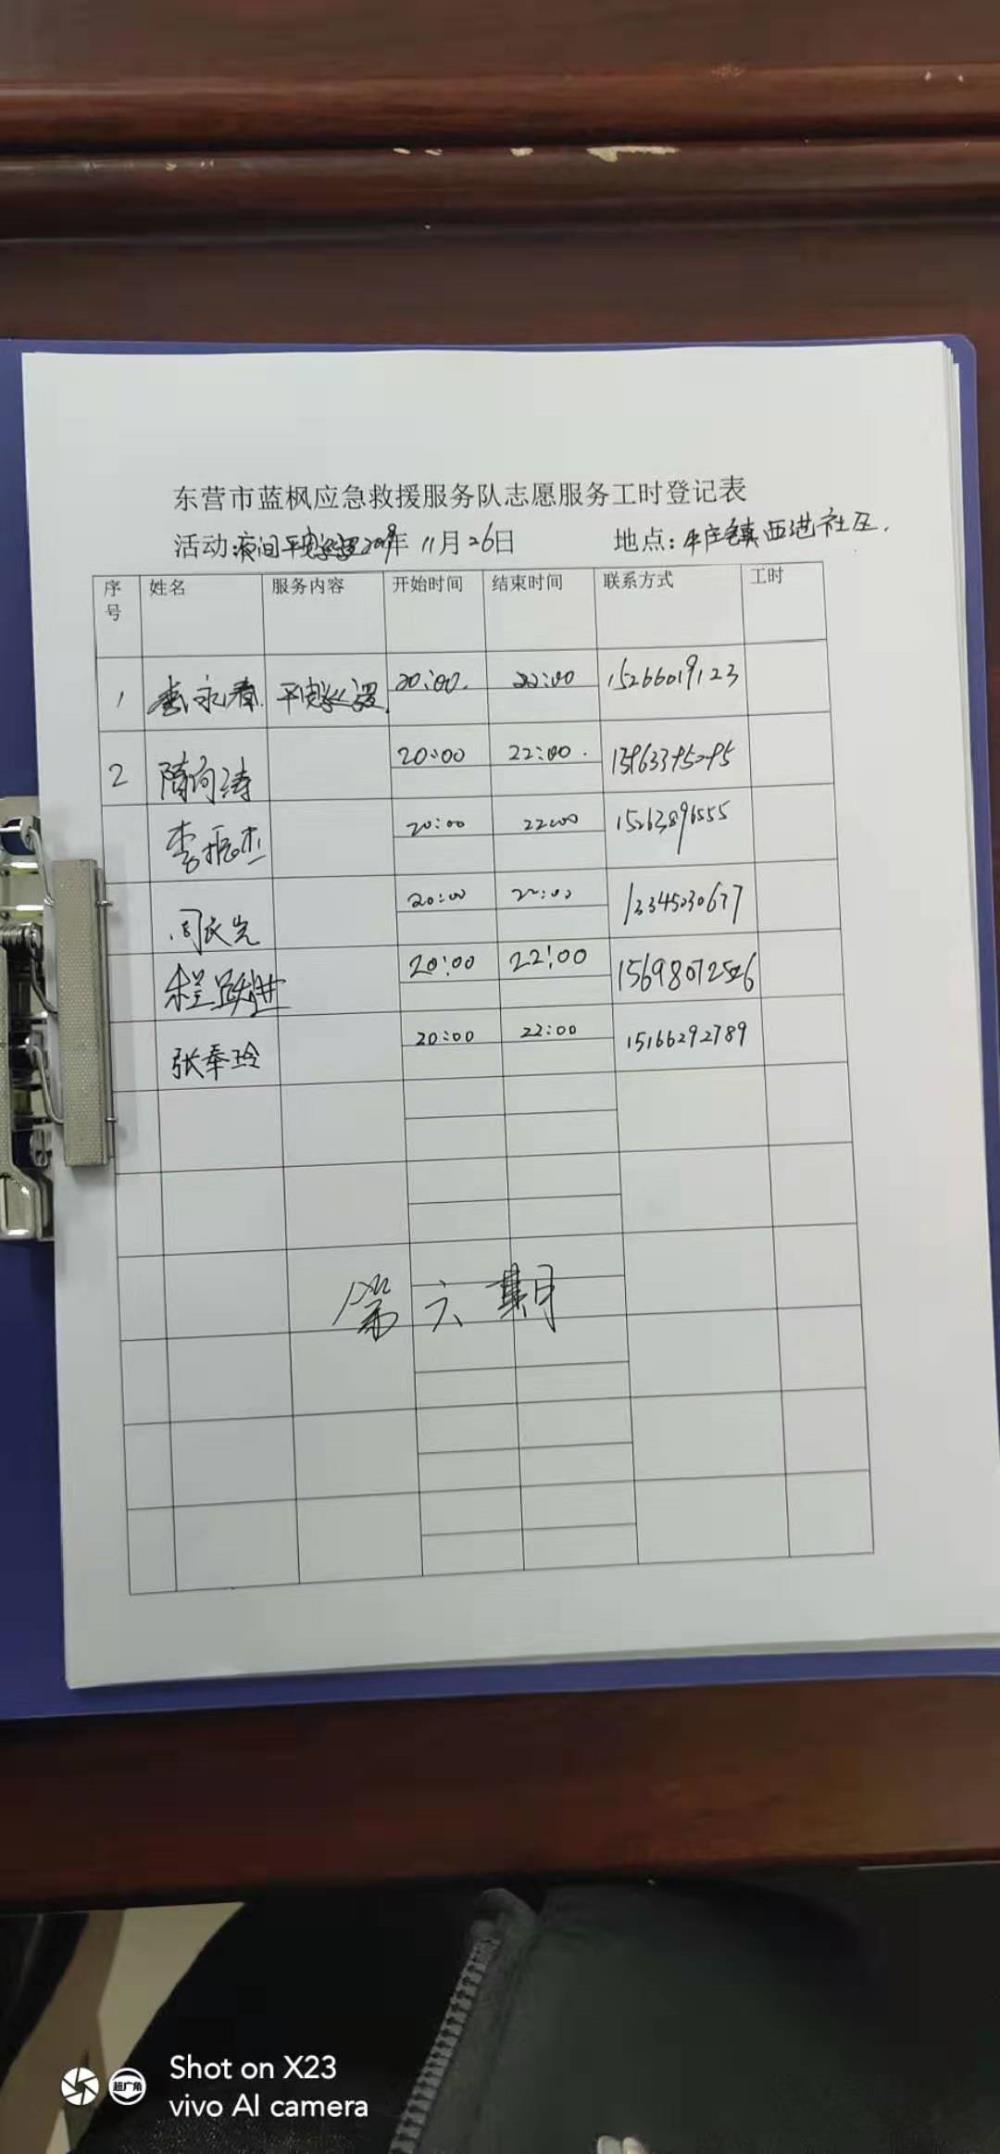 东营市蓝枫应急救援服务队志愿服务工时登记表
活动:夜间平安巡逻2019年 11月26日 地点:牛庄镇西进社区.
序号 姓名 服务内容 开始时间 结束时间 联系方式 工时
1 永春 平安巡逻 20:00. 22:00 15266019123
2 隋向涛 20:00 22:00.
李振杰 20:00 22:00 15263896555
司民先 20:00 22:00
程跃进 20:00 22:00
张奉玲 20:00 22:00 15166292789
第六期
超广角
Shot on X23
vivo AI camera